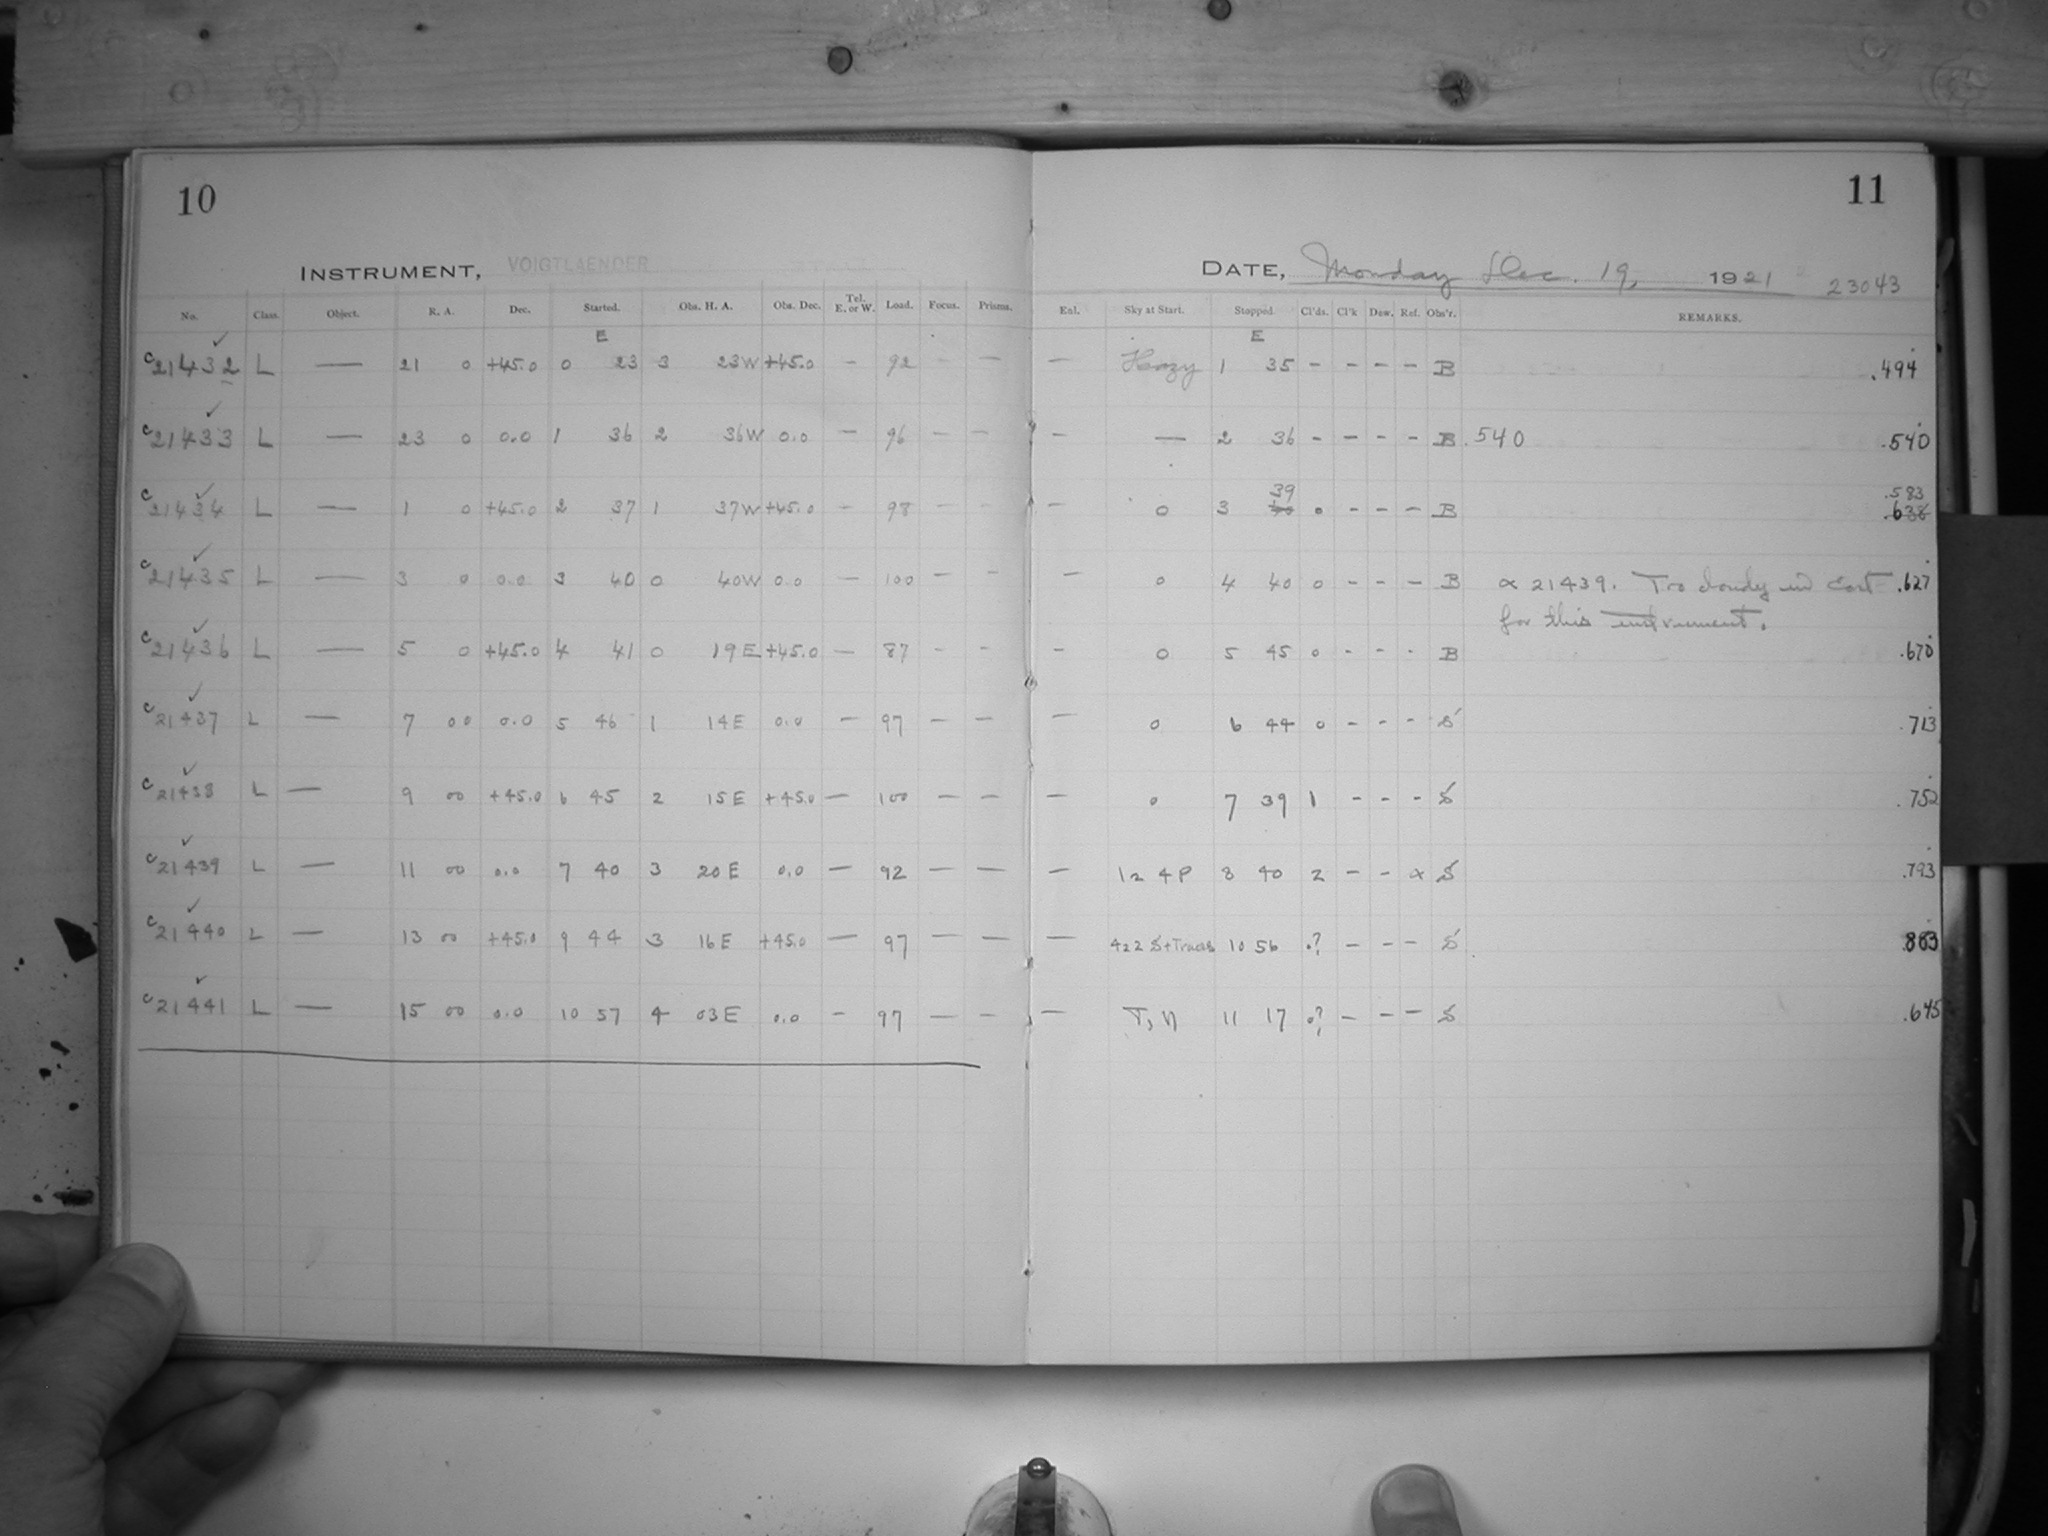 10
11
INSTRUMENT, VOIGTLAENDER
DATE, Monday Dec. 19, 1921 23043
No. Class. Object. R. A. Dec. Started. Obs. H. A. Obs. Dec. Tel. E. or W. Load. Focus. Prisms. Enl. Sky at Start. Stopped. Cl'ds. Cl'k Dew. Ref. Obs'r. REMARKS.
E E
c21432 L — 21 0 +45.0 0 23 3 23W +45.0 – 92 — — — Hazy 1 35 – – – – B .494
c21433 L — 23 0 0.0 1 36 2 36W 0.0 – 96 – – – — 2 36 – – – – B .540 .540
39 .583
c21434 L — 1 0 +45.0 2 37 1 37W +45.0 – 98 – – – 0 3 40 0 – – – B .638
c21435 L — 3 0 0.0 3 40 0 40W 0.0 – 100 – – – 0 4 40 0 – – – B α 21439. Too cloudy in East .627
for this instrument.
c21436 L — 5 0 +45.0 4 41 0 19E +45.0 – 87 – – – 0 5 45 0 – – – B .670
c21437 L — 7 00 0.0 5 46 1 14E 0.0 – 97 – – – 0 6 44 0 – – – S .713
c21438 L — 9 00 +45.0 6 45 2 15E +45.0 – 100 – – – 0 7 39 1 – – – S .752
c21439 L — 11 00 0.0 7 40 3 20E 0.0 – 92 – – – 12 4P 8 40 2 – – α S .793
c21440 L — 13 00 +45.0 9 44 3 16E +45.0 – 97 – – – 422 S+Traces 10 56 .? – – – S
c21441 L — 15 00 0.0 10 57 4 03E 0.0 – 97 – – – 11 17 0? – – – S .645